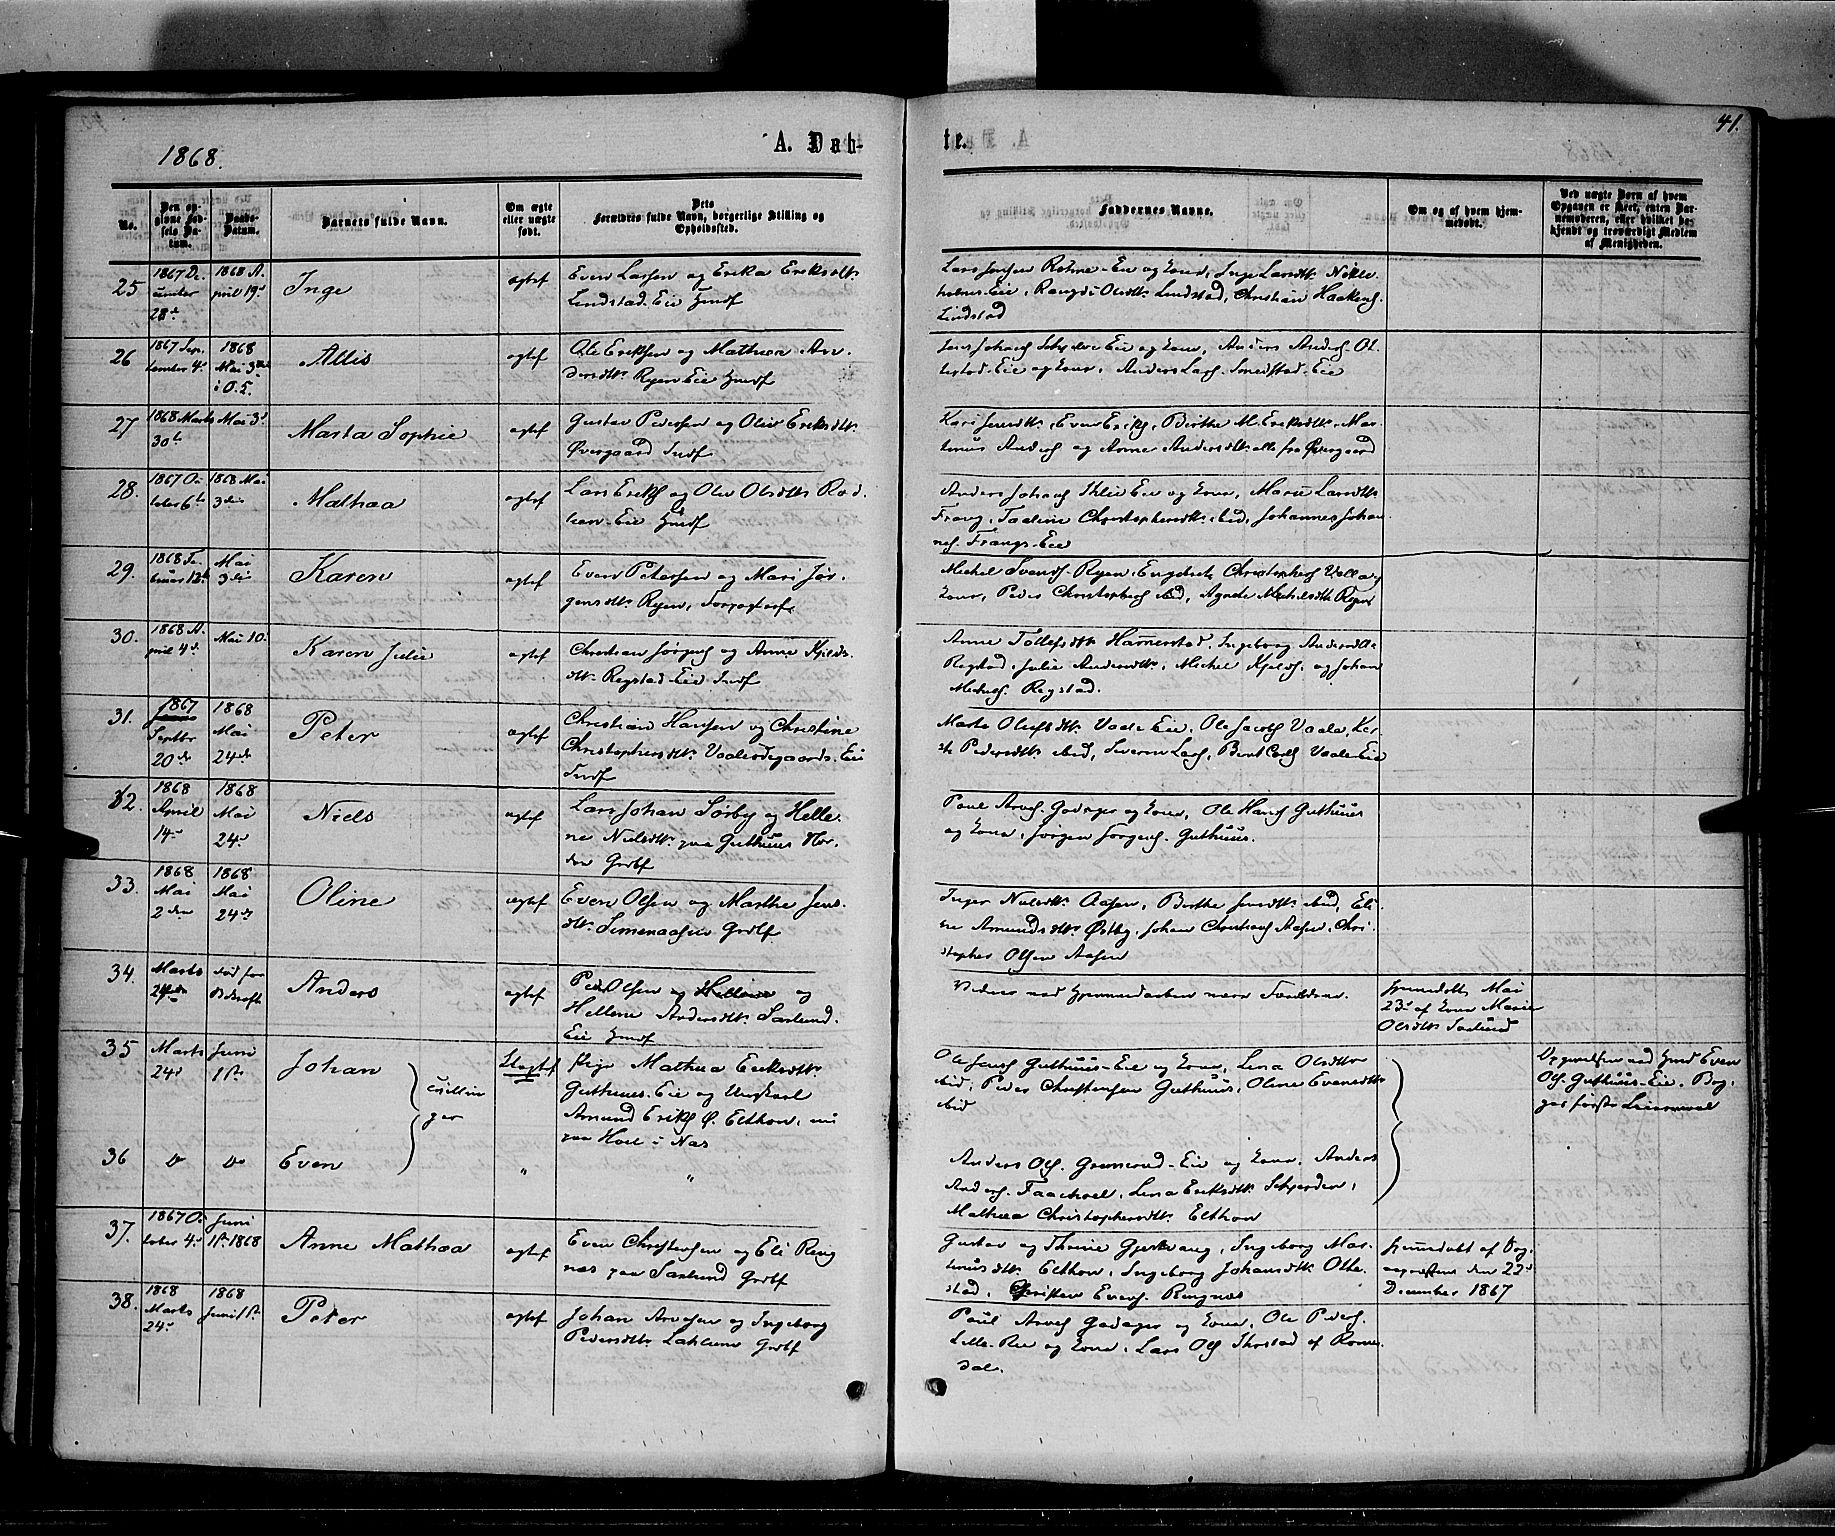 1868.
A. Døb-
te.
41.
No.
Den op-
givne Fød-
sels Da-
tum.
Daabs-
Datum.
Barnets fulde Navn.
Om ægte
eller uægte
født.
Dets
Forældres fulde Navn, borgerlige Stilling og
Opholdssted.
Faddernes Navne.
Om og af hvem hjem-
medøbt.
Ved uægte Børn af hvem
Opgaven er skeet, enten Bar-
nemoderen, eller hvilket be-
kjendt og troværdigt Medlem
af Menigheden.
25
1867 De-
cember
28de
1868 A-
pril 19de
Inge
ægtef
Even Larsen og Erika Eriksdtr
Lindstad-Eie Husf
Lars Jensen Rohne-Eie og Kone, Inge Larsdtr
Eie, Rangdi Olsdtr Lindstad, Christian Haakens.
Lindstad
26
1867 Sep-
tember 4de
1868
Mai 3die
i O. S.
Allis
ægtef
Ole Eriksen og Mathea An-
dersdtr Ryen Eie Husf
Johans Eie og Kone, Anders Anders. Ol-
lestad-Eie og Kone, Anders Lars. Smedstad-Eie
27
1868 Marts
30te
Mai 3die
Marta Sophie
ægtef
Gustav Pedersen og Oliv Eriksdtr
Øvergaard Indf
Kari Jensdtr, Even Eriks, Birthe M. Eriksdtr, Mar-
tinus Anders og Anne Andersdtr alle fra Øvergaard
28.
1867 Oc-
tober 6te
1868 Mai
3die
Mathea
ægtef
Lars Eriks og Oliv Olsdtr
Eie Husf
Anders Johans Eie og Kone, Marie Larsdtr
Frang, Christophersdtr ibid, Johannes Johan-
nes. Frangs-Eie
29.
1868 Fe-
bruar 12te
Mai
3die
Karen
ægtef
Even Petersen og Mari Jør-
gensdtr Ryen,
Michel Svends. Ryen, Engebret Christophers Valle og
Kone, Peder Christophers ibid, Agnete Michelsdtr Ryen
30.
1868 A-
pril 4de
Mai 10.
Karen Julie
ægtef
Christian Jørgens og Anne Kjelds-
dtr Regstad-Eie Indf
Anne Tollefsdtr Hamerstad, Ingeborg Andersdtr
Regstad, Julie Andersdtr, Michel Kjelds. og Johan
Michels. Regstad.
31.
1867
Septbr
20de
1868
Mai
24de
Peter
ægtef
Christian Hansen og Christine
Christophersdtr Vaaleødegaards-Eie
Indf
Marte Olsdtr Vaale Eie, Ole Jacobs Vaale, Ker-
sti Pedersdtr ibid, Severin Lars, Bent Carls Vaale-Eie
32.
1868
April
14de
1868
Mai
24de
Niels
ægtef
Lars Johan Sørby og Helle-
ne Nielsdtr paa Guthuus Nor-
dre Grdbf
Paul Arves Godager og Kone, Ole Hans Guthuus
og Kone, Jørgen Jørgens. Guthuus.
33.
1868
Mai
2den
1868
Mai
24de
Oline
ægtef
Even Olsen og Marthe Jens-
dtr Simenaasen Grdbf
Inger Nielsdtr Aasen, Birthe Jensdtr ibid, Eli-
ne Amundsdtr Østby, Johan Christians Aasen, Chri-
stopher Olsen Aasen
34.
Marts
24de
død før
Bekræft
Anders
ægtef
Peder Olsen og Hellene og
Hellene Andersdtr Saxlund-
Eie Husf
Vidner ved Hjemmedaaben være Forældrene.
hjemmedøbt Mai
23de af Kone Marie
Olsdtr Saxlund
35
Marts
24de
Juni
1ste
Johan
tvillin-
ger
Uægtef
Pige Mathea Eriksdtr
Guthuus-Eie og Ungkarl
Amund Eriks. Ø. Elthon, nu
paa Hoel i Næs
Ole Jens. Guthuus-Eie og Kone, Lena Olsdtr
ibid, Peder Christensen Guthuus, Oline Evensdtr
ibid
Opgivelsen ved Husf Even
Ols. Guthuus-Eie. Beg-
ges første Leiermaal
36
Do
Do
Even
"
"
Anders Ols. Grønerud-Eie og Kone, Anders
Anders. Lena Eriksdtr
Mathea Christophersdtr Elthon
37.
1867 Oc-
tober 4de
Juni
1ste 1868
Anne Mathea
ægtef
Even Christensen og Eli Ring-
næs paa Saxlund Grdbf
Gustav og Thrine Gjerkvang, Ingeborg Mar-
tinusdtr Elthon, Ingeborg Johansdtr Olle-
stad, Christen Evens. Ringnæs
hjemmedøbt af Sog-
nepræsten den 22de
December 1867
38.
1868
Marts
24de
1868
Juni 1ste
Peter
ægtef
Johan Arvesen og Ingeborg
Pedersdtr Grdbf
Paul Arves Godager og Kone, Ole Peders.
Lille-Ree og Kone, Lars Ols Thorstad af Rome-
dal.